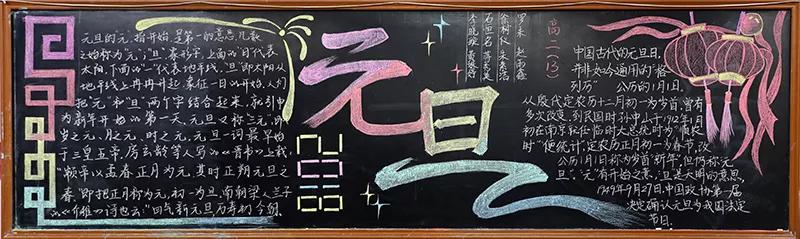 元旦的元,指开始,是第一的意思,凡数
之始称为“元”;“旦”象形字,上面的“日”代表
太阳,下面的“一”代表地平线。“旦”即太阳从
地平线上冉冉升起,象征一日的开始。人们
把“元”和“旦”两个字结合起来,就引申
为新年开始的第一天。元旦又称“三元”,即
岁之元、月之元、时之元。元旦一词最早始
于三皇五帝,房玄龄等人写的《晋书》上载:
“颛帝以孟春正月为元,其时正朔元旦之
春。”即把正月称为元,初一为旦。南朝梁人兰子
《介雅》诗也云:“四气新元旦,万寿初今朝。
元旦
2018
高二(3)
中国古代的元旦日,
并非如今通用的“格
列历” 公历的1月1日。
从殷代定农历十二月初一为岁首,曾有
多次改变,到民国时孙中山于1912年1月
初在南京就任临时大总统时为“顺农
时”“便统计”,定农历正月初一为春节,改
公历1月1日称为岁首“新年”,但仍称“元
旦”。“元”有开始之意,“旦”是天明的意思。
1949年9月27日,中国政协第一届
决定确认元旦为我国法定
节日。